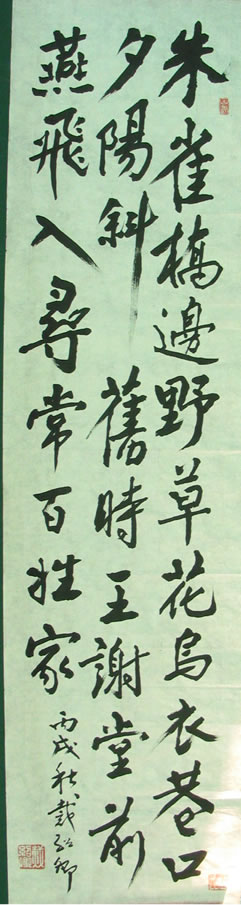 朱雀橋邊野草花烏衣巷口
夕陽斜舊時王謝堂前
燕飛入尋常百姓家
丙戌秋戴卿